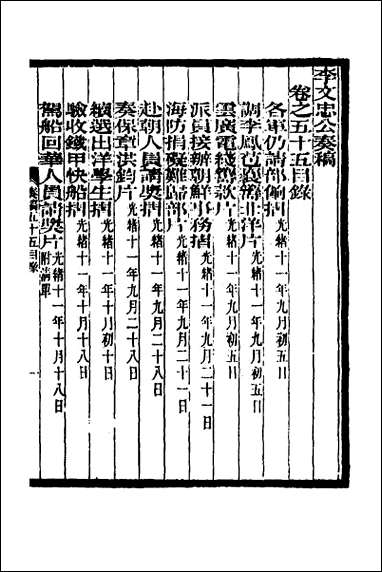 李文忠公奏稿
卷之五十五目錄
各軍仍請部餉摺光緒十一年九月初五日
調李鳳苞差北洋片光緒十一年九月初五日
雲廣電綫籌款片光緒十一年九月初五日
派員接辦朝鮮事務摺光緒十一年九月二十一日
海防捐礙難歸部片光緒十一年九月二十一日
赴朝人員請獎摺光緒十一年九月二十一日
奏保章洪鈞片光緒十一年九月二十一日
續選出洋學生摺光緒十一年十月初十日
驗收鐵甲快船摺光緒十一年十月十八日
駕船回華人員請獎片附清單光緒十一年十月十八日
奏稿五十五目錄
一